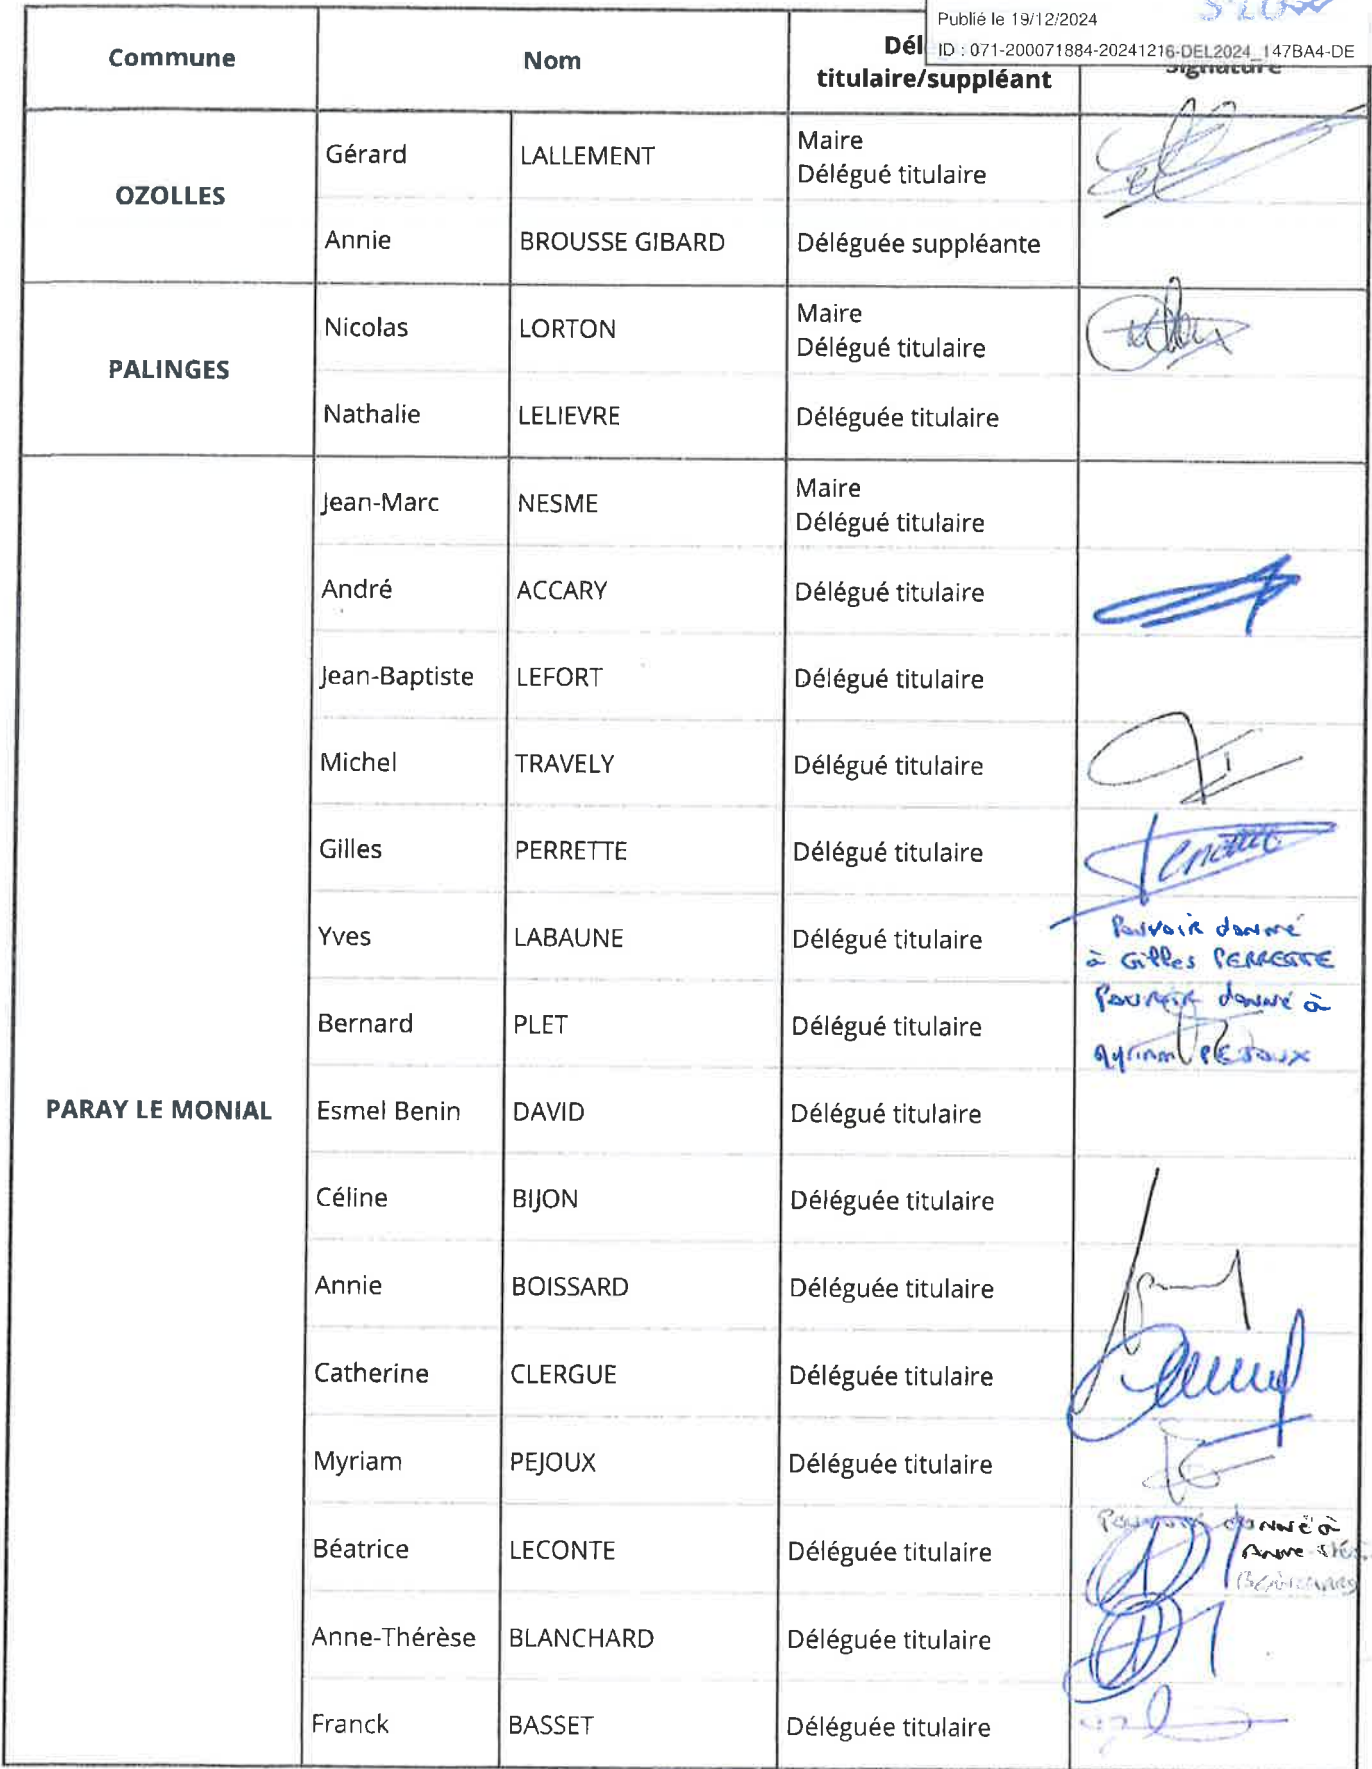 Publié le 19/12/2024
ID : 071-200071884-20241216-DEL2024_147BA4-DE
Commune Nom Dél
titulaire/suppléant Signature
OZOLLES
Gérard LALLEMENT Maire
Délégué titulaire
Annie BROUSSE GIBARD Déléguée suppléante
PALINGES
Nicolas LORTON Maire
Délégué titulaire
Nathalie LELIEVRE Déléguée titulaire
PARAY LE MONIAL
Jean-Marc NESME Maire
Délégué titulaire
André ACCARY Délégué titulaire
Jean-Baptiste LEFORT Délégué titulaire
Michel TRAVELY Délégué titulaire
Gilles PERRETTE Délégué titulaire
Yves LABAUNE Délégué titulaire Pouvoir donné
à Gilles PERRETTE
Bernard PLET Délégué titulaire Pouvoir donné à
Myriam PEJOUX
Esmel Benin DAVID Délégué titulaire
Céline BIJON Déléguée titulaire
Annie BOISSARD Déléguée titulaire
Catherine CLERGUE Déléguée titulaire
Myriam PEJOUX Déléguée titulaire
Béatrice LECONTE Déléguée titulaire Pouvoir donné à
Anne
BLANCHARD
Anne-Thérèse BLANCHARD Déléguée titulaire
Franck BASSET Déléguée titulaire